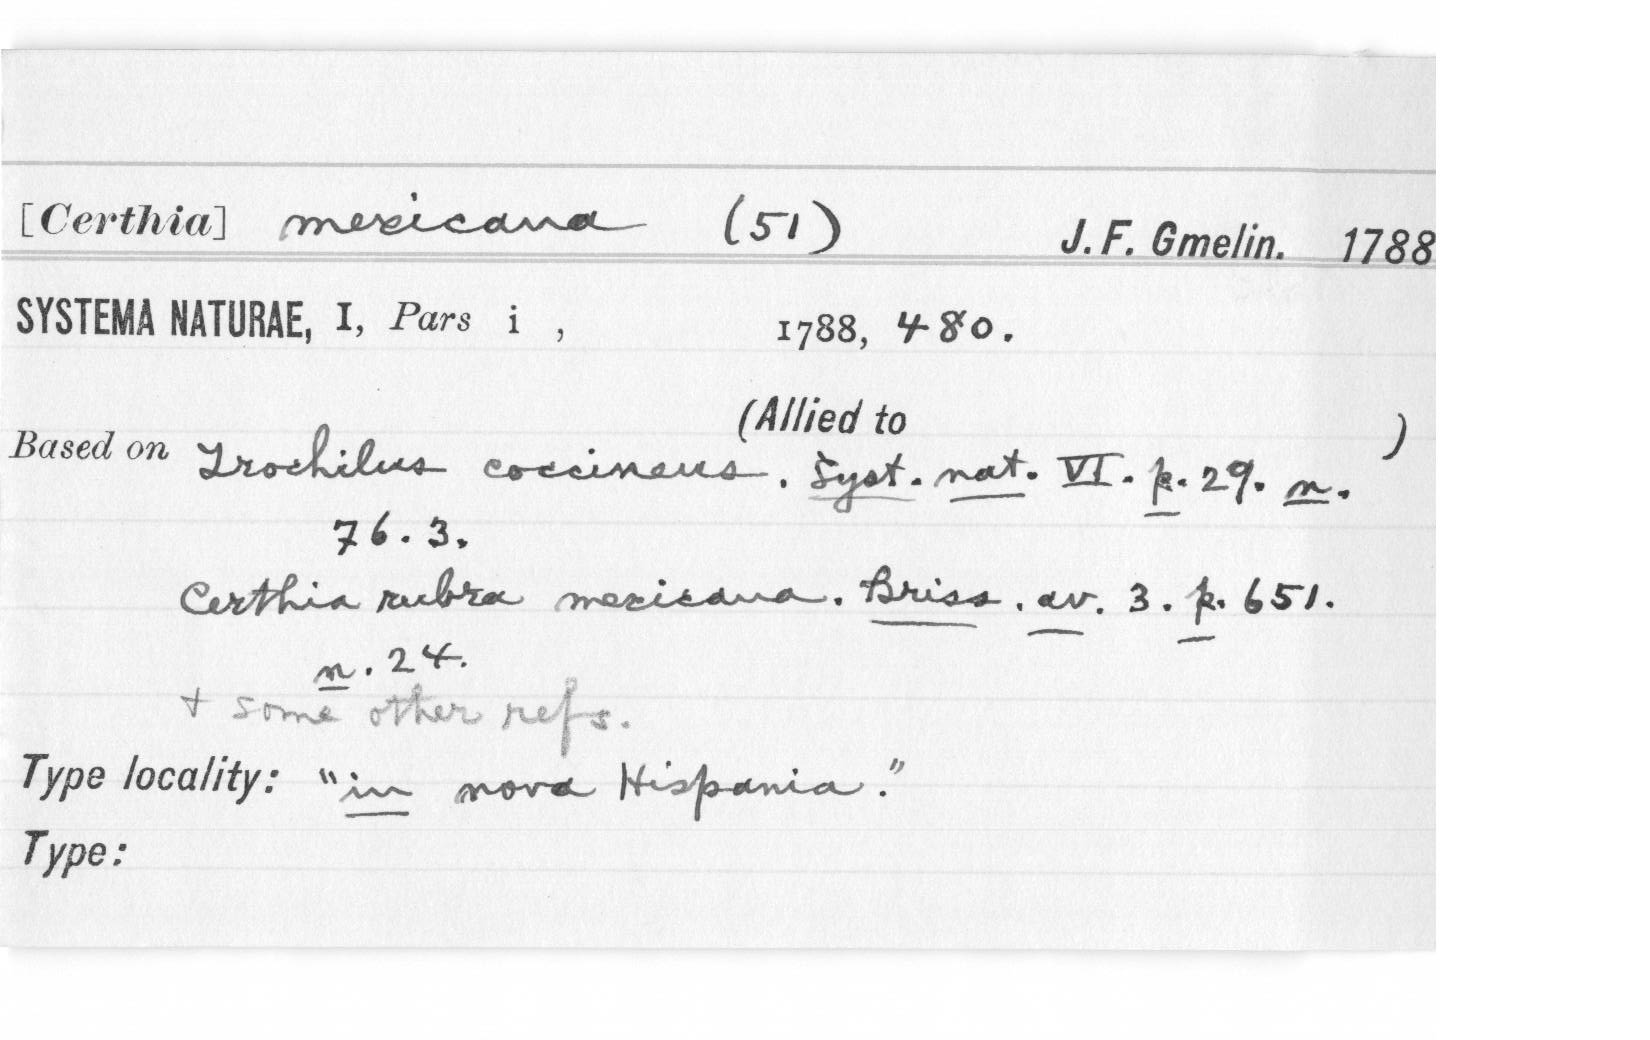 [Certhia] mexicana (51) J. F. Gmelin. 1788
SYSTEMA NATURAE, I, Pars i , 1788, 480.
(Allied to )
Based on Trochilus coccineus. Syst. nat. VI. p. 29. n.
76. 3.
Certhia rubra mexicana. Briss. av. 3. p. 651.
n. 24.
+ some other refs.
Type locality: "in nova Hispania."
Type: